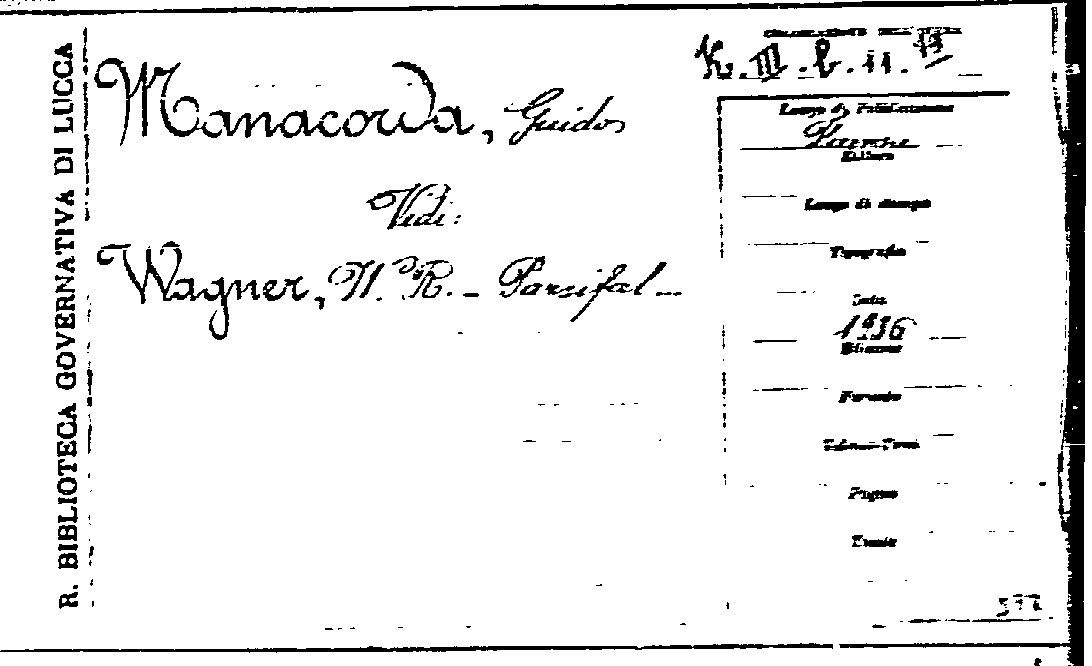 R. BIBLIOTECA GOVERNATIVA DI LUCCA
K.III.b.11.
Manacorda, Guido
Vidi:
Wagner, W. R. - Parsifal -
Luogo di Pubblicazione
Editore
Luogo di stampa
Tipografia
Data
1936
Edizione
Formato
Volume-Tomo
Pagine